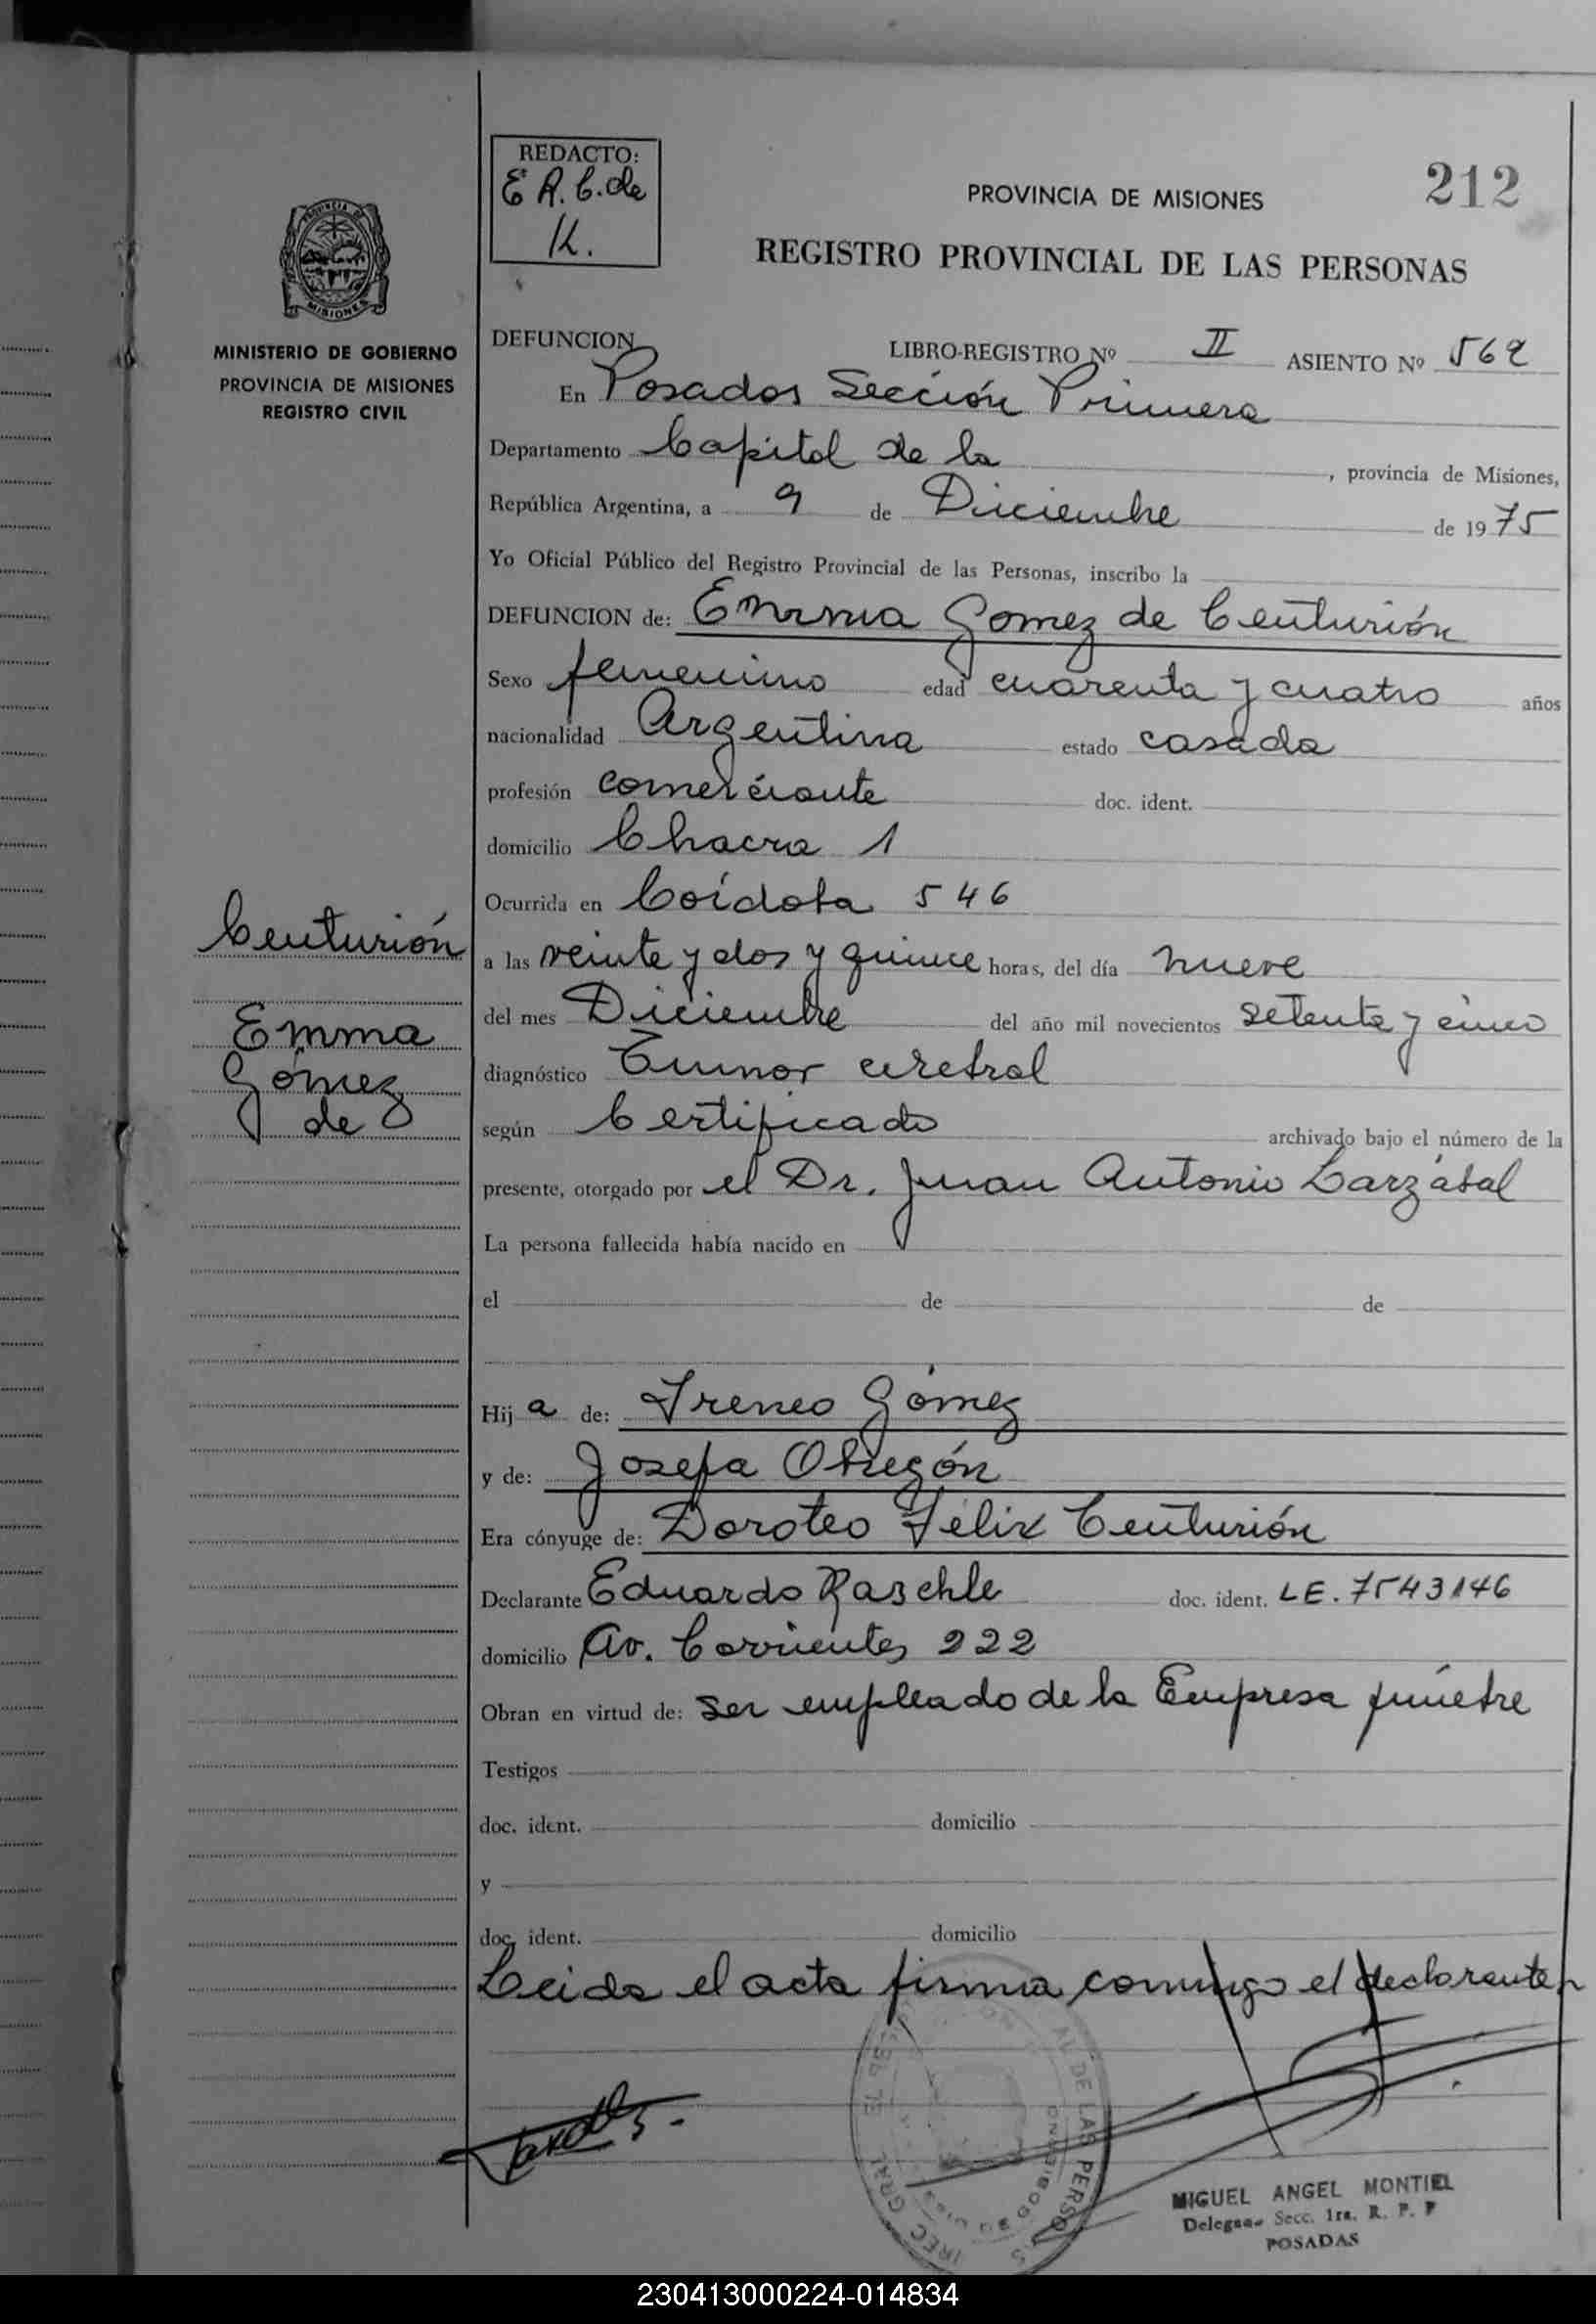 REDACTO:
E A. C. de
K.
PROVINCIA DE MISIONES
212
REGISTRO PROVINCIAL DE LAS PERSONAS
PROVINCIA DE
MISIONES
MINISTERIO DE GOBIERNO
PROVINCIA DE MISIONES
REGISTRO CIVIL
DEFUNCION LIBRO-REGISTRO Nº II ASIENTO Nº 562
En Posadas Sección Primera
Departamento Capital de la, provincia de Misiones,
República Argentina, a 9 de Diciembre de 1975
Yo Oficial Público del Registro Provincial de las Personas, inscribo la
DEFUNCION de: Emma Gomez de Centurión
Sexo femenino edad cuarenta y cuatro años
nacionalidad Argentina estado casada
profesión comerciante doc. ident.
domicilio Chacra 1
Ocurrida en Córdoba 546
a las veinte y dos y quince horas, del día nueve
del mes Diciembre del año mil novecientos setenta y cinco
diagnóstico Tumor cerebral
según Certificado archivado bajo el número de la
presente, otorgado por el Dr. Juan Antonio Larzábal
La persona fallecida había nacido en
el de de
Hija de: Ireneo Gómez
y de: Josefa Obregón
Era cónyuge de: Doroteo Félix Centurión
Declarante Eduardo Raschle doc. ident. LE. 7543146
domicilio Av. Corrientes 222
Obran en virtud de: ser empleado de la Empresa fúnebre
Testigos
doc. ident. domicilio
y
doc. ident. domicilio
Leída el acta firma conmigo el declarante
Centurión
Emma
Gómez
de
MIGUEL ANGEL MONTIEL
Secc. 1ra. R. P. P
POSADAS
230413000224-014834